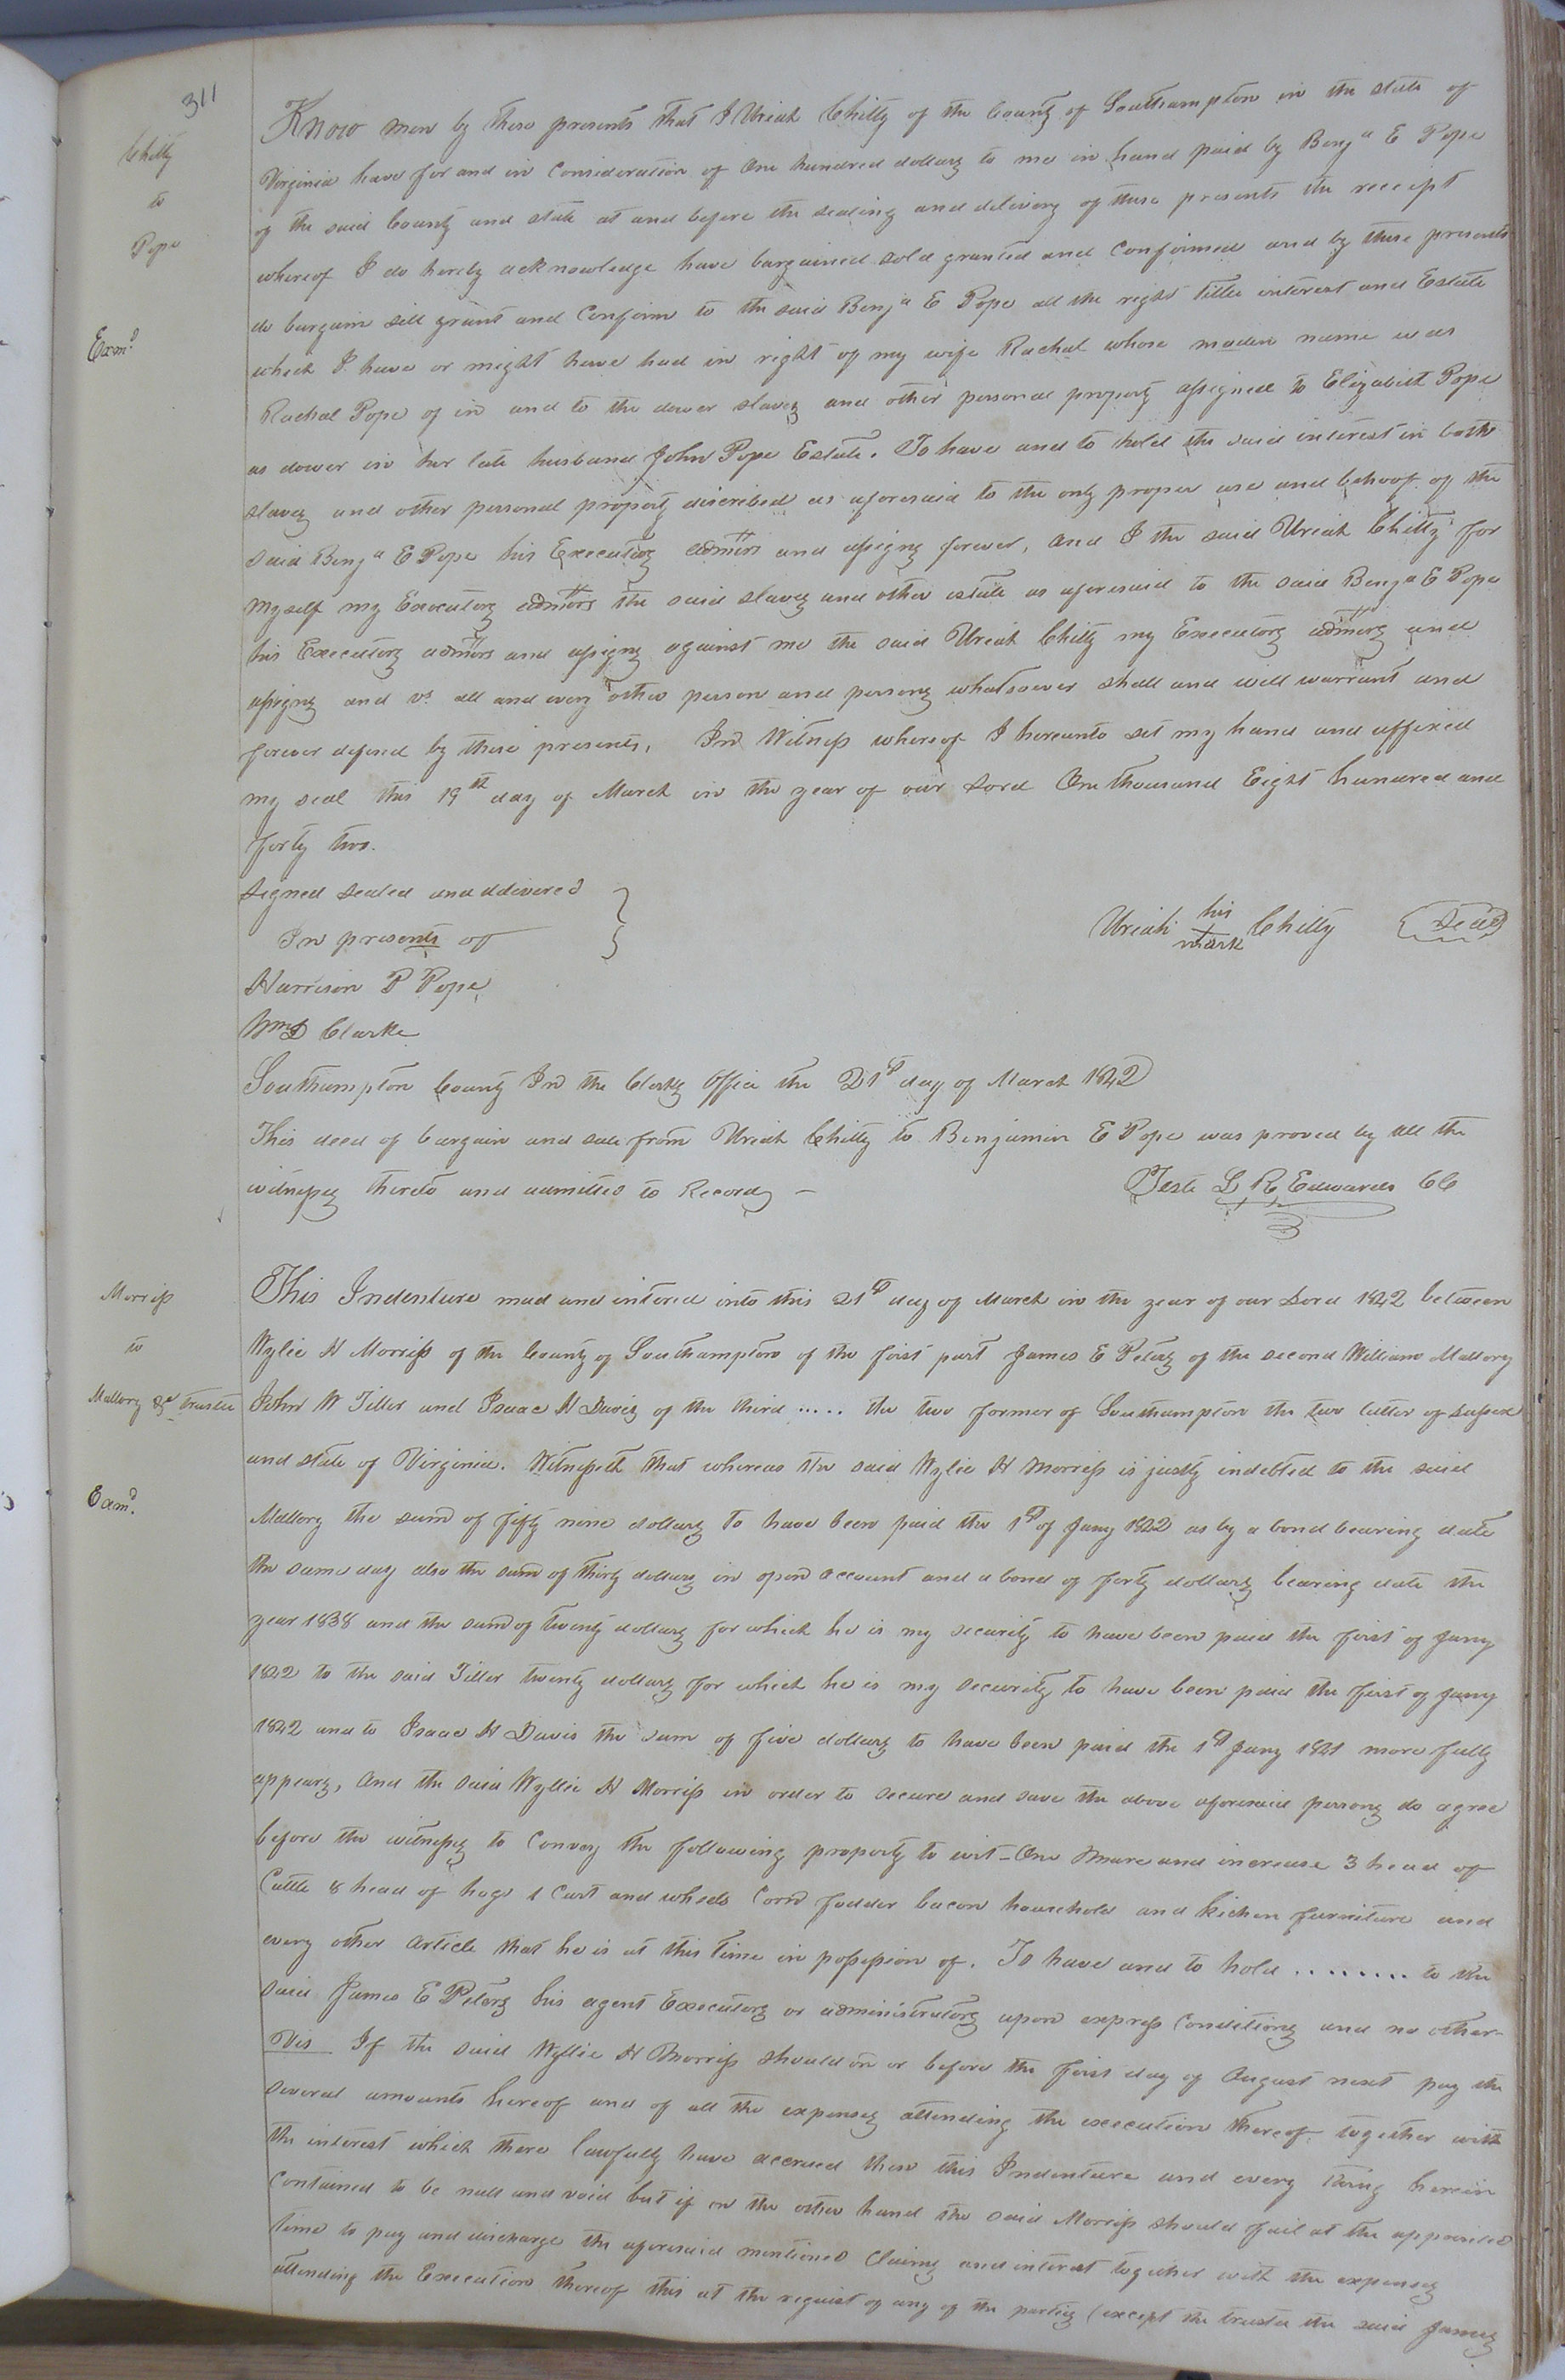 311
Chitty
to
Pope
Exm.d
Know men by these presents that I Uriah Chitty of the County of Southampton in the state of
Virginia have for and in Consideration of One hundred dollars to me in hand paid by Benja E Pope
of the said County and state at and before the sealing and delivery of these presents the receipt
whereof I do hereby acknowledge have bargained sold granted and Confirmed and by these presents
do bargain sell grant and Confirm to the said Benja E Pope all the right title interest and Estate
which I have or might have had in right of my wife Rachal whose maden name was
Rachal Pope of in and to the dower slaves and other personal property assigned to Elizabeth Pope
as dower in her late husband John Pope Estate. To have and to hold the said interest in both
slaves and other personal property discribed as aforesaid to the only proper use and behoof of the
said Benja E Pope his Executors admrs and assigns forever, And I the said Uriah Chitty for
myself my Executors admrs the said slaves and other estate as aforesaid to the said Benja E Pope
his Executors admrs and assigns against me the said Uriah Chitty my Executors admrs and
assigns and vs. all and every other person and persons whatsoever shall and will warrant and
forever defend by these presents. In Witness whereof I hereunto set my hand and affixed
my seal this 19th day of March in the year of our Lord One thousand Eight hundred and
forty two.
Signed Sealed and delivered
In presents of
Uriah his mark Chitty Seal
Harrison P Pope
Wm D Clarke
Southampton County In the Clerks Office the 21st day of March 1842
This deed of bargain and sale from Uriah Chitty to Benjamin E Pope was proved by all the
witnesses thereto and admitted to Record
Teste L R Edwards CC
Morriss
to
Mallory &c Trustee
Exam.d
This Indenture mad and intered into this 21st day of March in the year of our Lord 1842 between
Wylie H Morriss of the County of Southampton of the first part James E Peters of the second William Mallory
John W Tiller and Isaac H Davis of the third ..... the two former of Southampton the two latter of Sussex
and state of Virginia. Witnesseth that whereas the said Wylie H Morriss is justly indebted to the said
Mallory the sum of fifty nine dollars to have been paid the 1st of Jany 1842 as by a bond bearing date
the same day also the sum of thirty dollars in open account and a bond of forty dollars bearing date the
year 1838 and the sum of twenty dollars for which he is my security to have been paid the first of Jany
1842 to the said Tiller twenty dollars for which he is my security to have been paid the first of Jany
1842 and to Isaac H Davis the sum of five dollars to have been paid the 1st Jany 1841 more fully
appears, And the said Wyllie H Morriss in order to secure and save the above aforesaid persons do agree
before the witnesses to Convey the following property to wit - One Mare and increase 3 head of
Cattle 8 head of hogs 1 Cart and wheels Corn fodder bacon household and kichen furniture and
every other article that he is at this time in possession of. To have and to hold ......... to the
said James E Peters his agent Executors or administrators upon express Conditions and no other-
Vis If the said Wyllie H Morriss should on or before the first day of August next pay the
several amounts hereof and of all the expenses attending the execution thereof together with
the interest which there lawfully have accrued then this Indenture and every thing herein
Contained to be null and void but if on the other hand the said Morriss should fail at the appointed
time to pay and discharge the aforesaid mentioned Claims and interest together with the expenses
attending the Execution thereof this at the request of any of the parties (except the trustee the said James